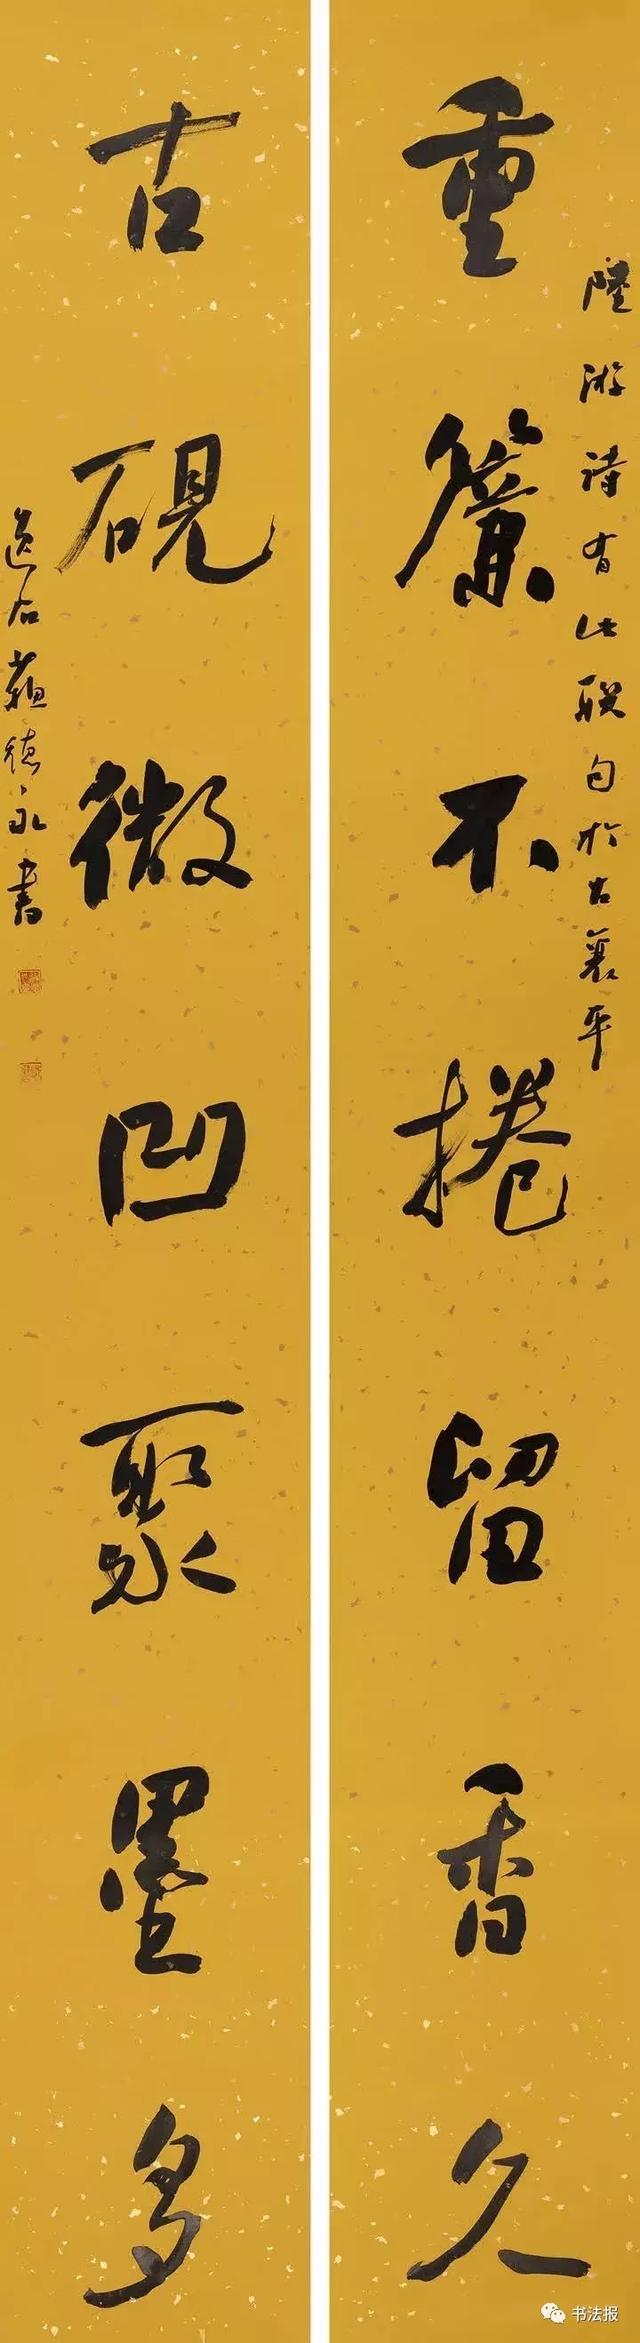 陸游詩有此联句於古襄平
重簾不捲留香久
古硯微凹聚墨多
石蘇德永書
书法报